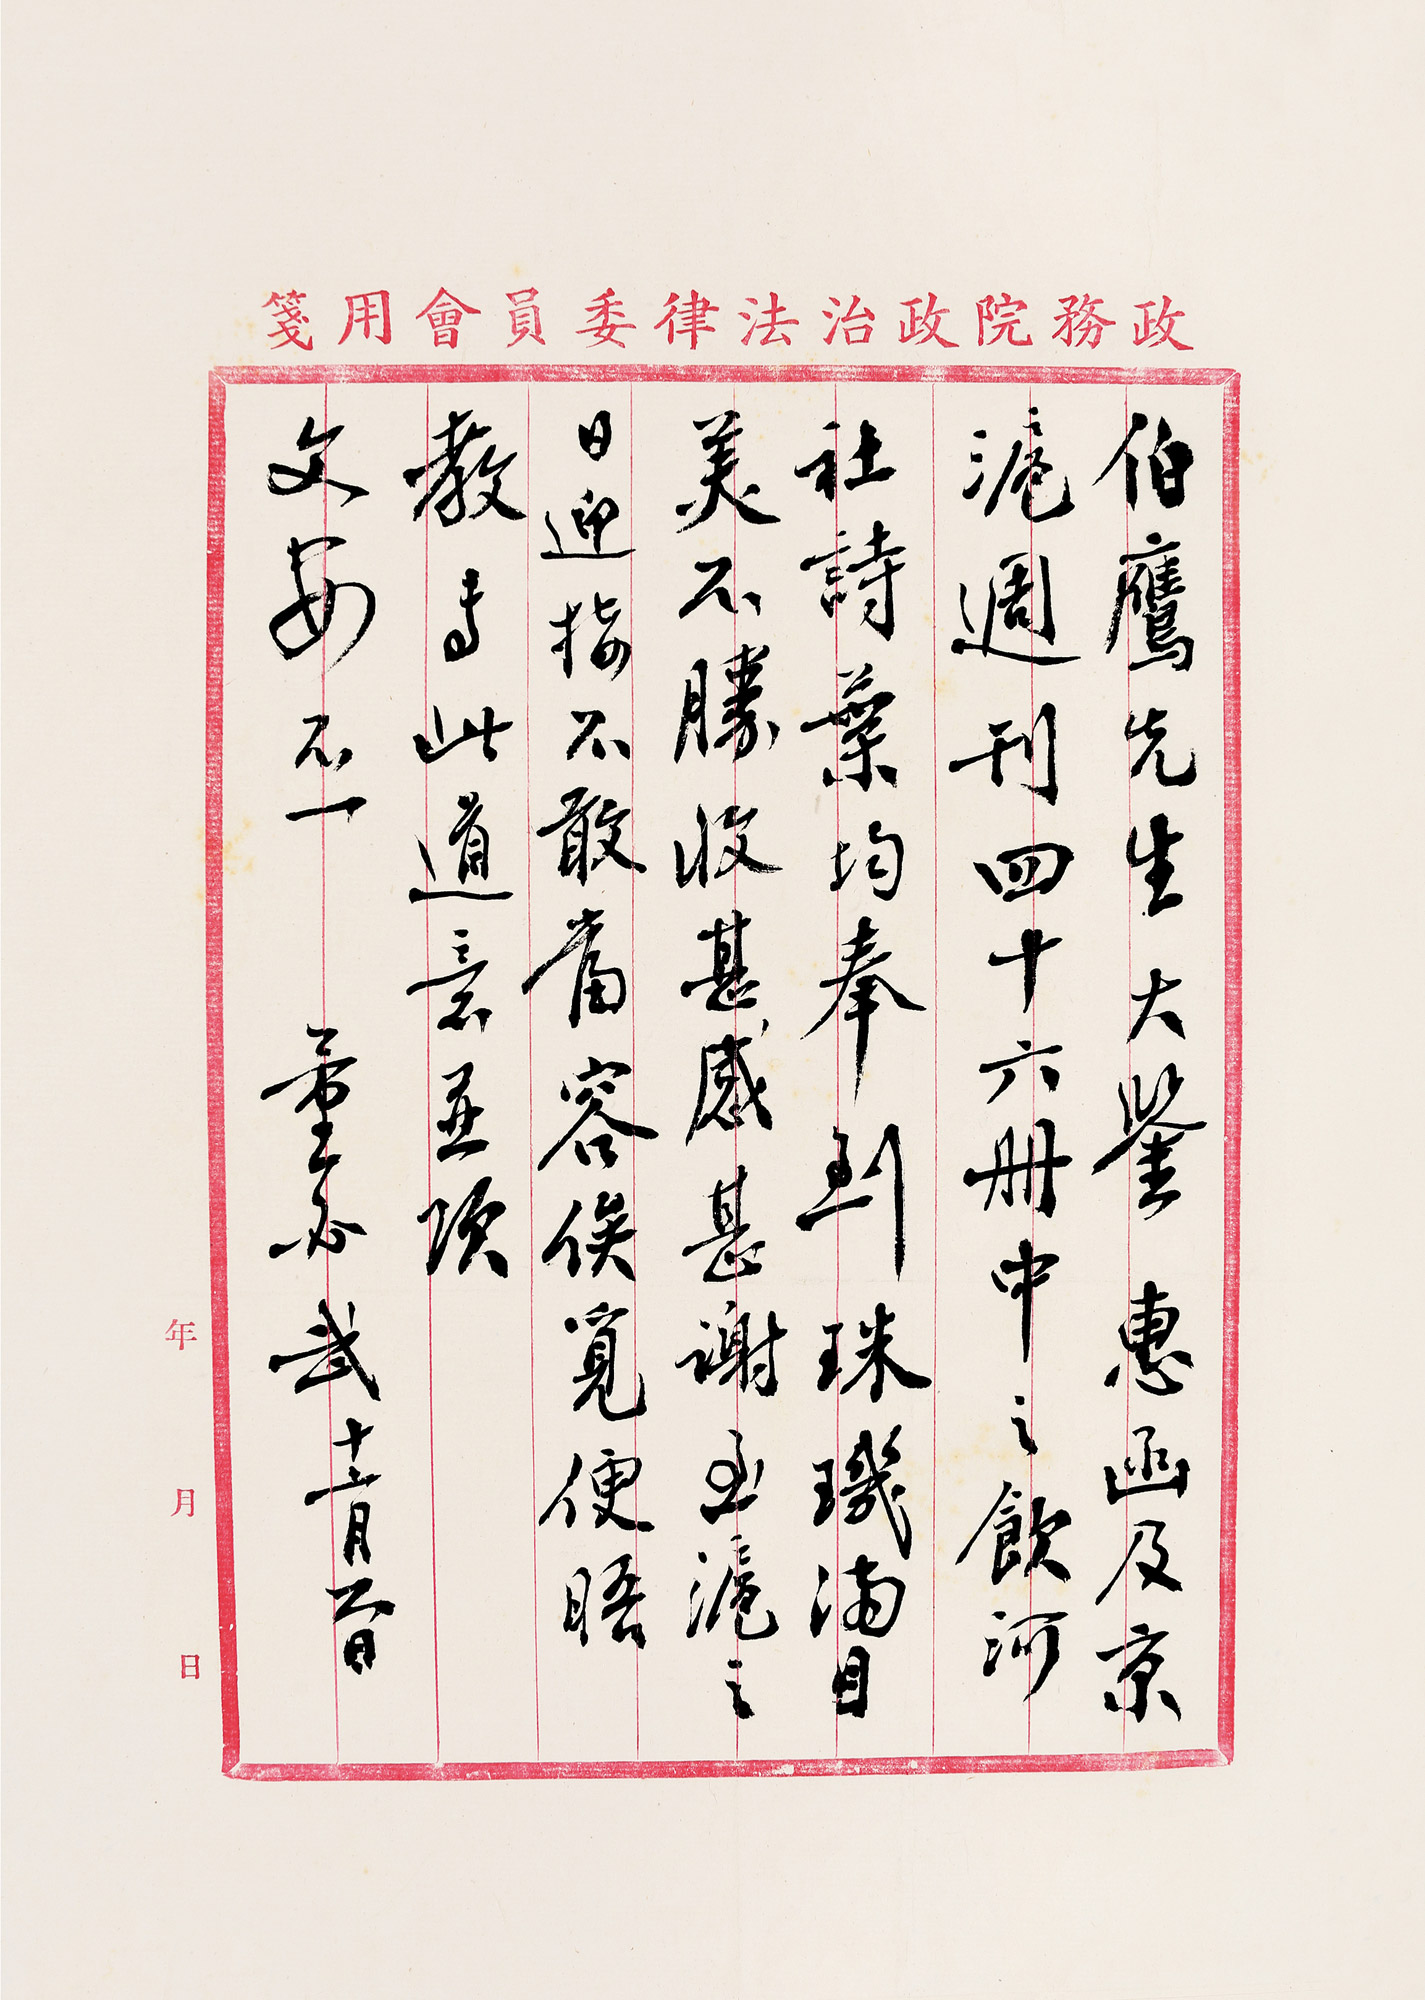 政務院政治法律委員會用箋
伯鷹先生大鑒惠函及京
滬週刊四十六冊中之飲河
社詩葉均奉到珠璣滿目
美不勝收甚感甚謝至滬之
日迎指不敢當容俟覓便晤
教專此道意並頌
文安不一 董必武十二月六日
年 月 日